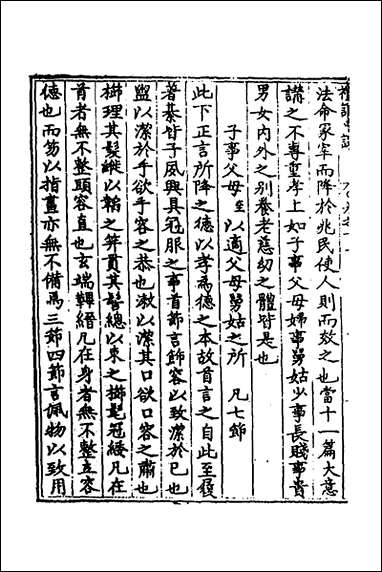 法命冢宰而降於兆民使人則而效之也當十一篇大意
講之不專重孝上如子事父母婦事舅姑少事長賤事貴
男女內外之別養老慈幼之體皆是也
子事父母至以適父母舅姑之所 凡七節
此下正言所降之德以孝為德之本故首言之自此至履
著綦皆子夙興具冠服之事首節言飾容以致潔於己也
盥以潔於手欲手容之恭也漱以潔其口欲口容之肅也
櫛理其髮縰以韜之笄貫其髻總以束之拂髦冠緌凡在
首者無不整頭容直也玄端鞸紳搢凡在身者無不整立容
德也而笏以指畫亦無不備焉三節四節言佩物以致用